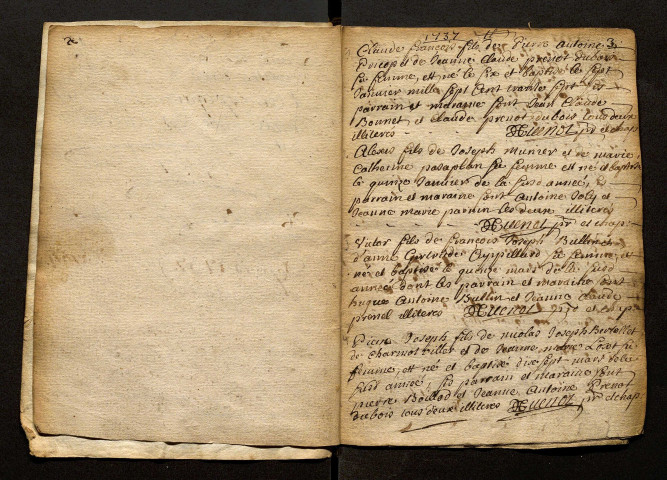 1737
Claude françois fils de Pierre Antoine
et de Jeanne Claude prenot dubois
sa femme, est né le six et baptisé le sept
Janvier mille sept cent trente sept ses
parrain et maraine sont Jean Claude
Bonnet et claude prenot dubois tous deux
illiteres Huenot ptr et chap
Alexis fils de Joseph Munier et de marie
Catherine sa femme est né et baptisé
le quinze Janvier de la susd année, ses
parrain et maraine sont Antoine Joly et
Jeanne marie les deux illiteres
Huenot ptr et chap
Victor fils de françois Joseph Bullin et
d'anne Cuppillard sa femme, est
né et baptisé le quinze mars de la susd
année dont les parrain et maraine sont
hugue Antoine Bullin et Jeanne claude
prenel illiteres Huenot ptr et chap
Joseph fils de nicolas Joseph
de charmotviller et de Jeanne sa
femme, est né et baptisé dix sept mars de la
susd année, ses parrain et maraine sont
pierre et Jeanne Antoine Prenot
dubois tous deux illiteres Huenot ptr et chap